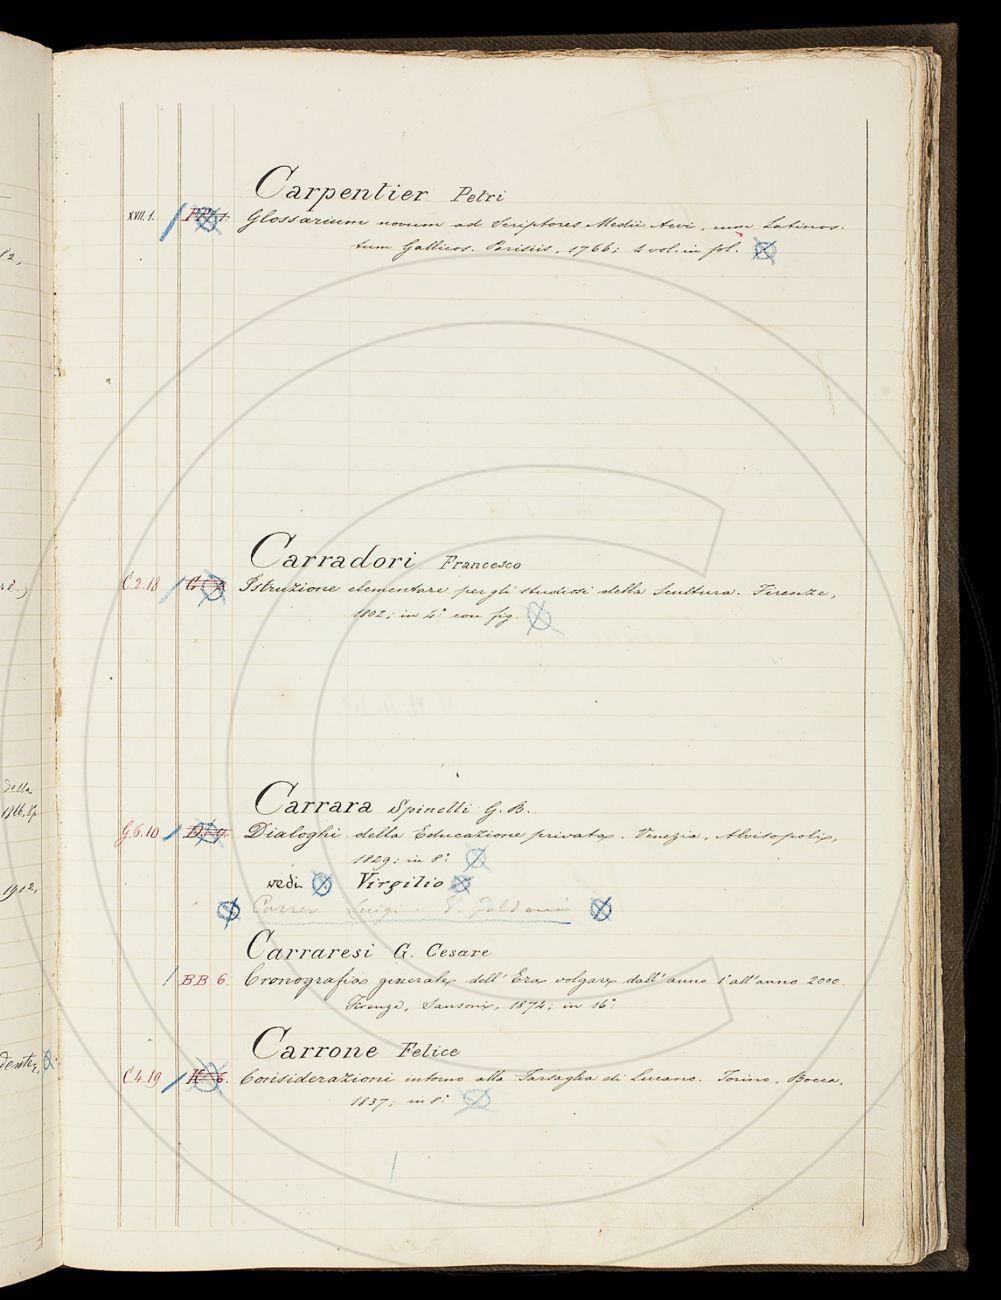 Carpentier Petri
XVII. 1. Glossarium novum ad Scriptores Medii Aevi, cum Latinos.
tum Gallicos. Parisiis, 1766; 4 vol. in fol.
Carradori Francesco
C.2.18 Istruzione elementare per gli studiosi della Scultura. Firenze,
1802; in 4.° con fig.
Carrara Spinelli G. B.
G.6.10 Dialoghi della Educazione privata. Venezia, Alvisopoli,
1829; in 8.°
vedi Virgilio
Carrer Luigi
Carraresi G. Cesare
BB 6. Cronografia generale dell' Era volgare dall' anno 1° all' anno 2000.
Firenze, Sansoni, 1874; in 16.°
Carrone Felice
C.4.19 K 6. Considerazioni intorno alla Farsaglia di Lucano. Torino, Bocca,
1837; in 8.°
della
1902,